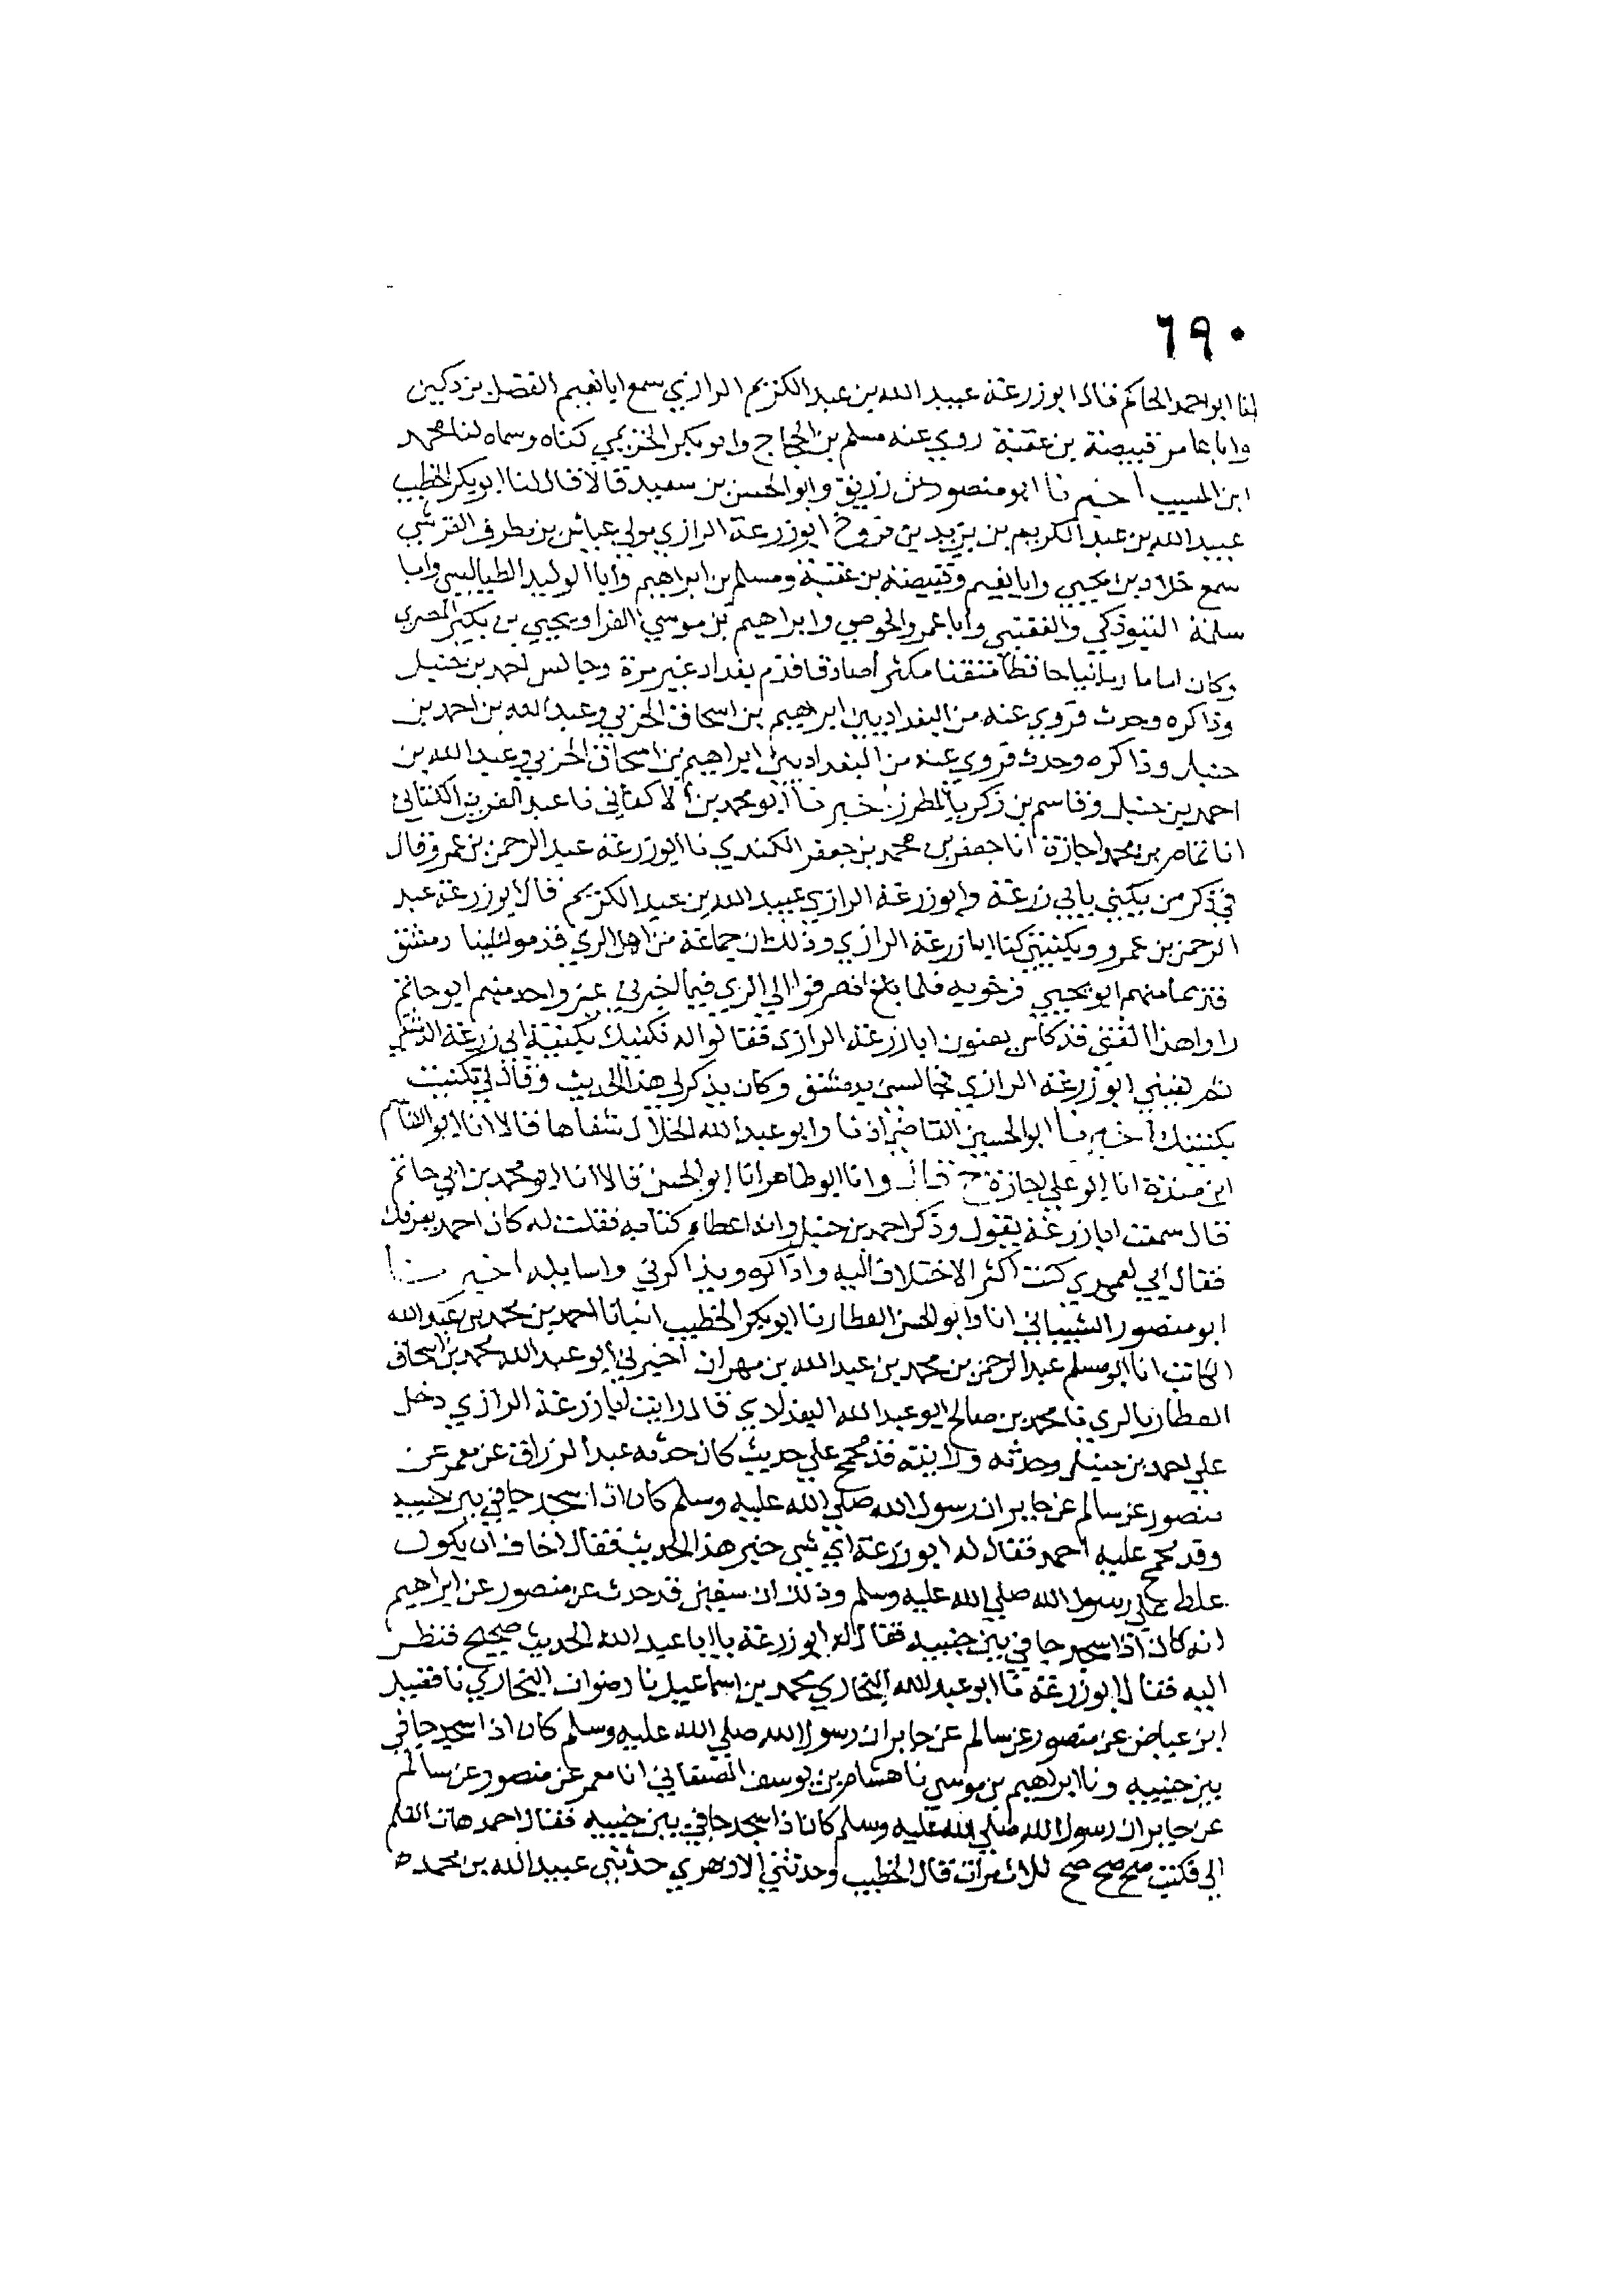 ٦٩٠
انا ابو احمد الحاكم قال ابو زرعة عبيد الله بن عبد الكريم الرازي سمع ابا نعيم الفضل بن دكين
وابا عامر قبيصة بن عقبة روى عنه مسلم بن الحجاج وابو بكر بن خزيمة كناه وسماه لنا محمد
ابن المسيب اخبرنا ابو منصور بن زريق وابو الحسن بن سعيد قالا قال لنا ابو بكر الخطيب
عبيد الله بن عبد الكريم بن يزيد بن فروخ ابو زرعة الرازي مولي عياش بن مطرف القرشي
سمع خلاد بن يحيي وابا نعيم وقبيصة بن عقبة ومسلم بن ابراهيم وابا الوليد الطيالسي وابا
سلمة التبوذكي والقعنبي وابا عمر الحوضي وابراهيم بن موسي الفرا ويحيي بن بكير المصري
وكان اماما ربانيا حافظا متقنا مكثرا صادقا قدم بغداد غير مرة وجالس احمد بن حنبل
وذاكره وحدث فروي عنه من البغداديين ابراهيم بن اسحاق الحربي وعبد الله بن احمد بن
حنبل وذاكره وحدث فروي عنه من البغداديين ابراهيم بن اسحاق الحربي وعبد الله بن
احمد بن حنبل وقاسم بن زكريا المطرز اخبرنا ابو محمد بن الاكفاني نا عبد العزيز الكتاني
انا تمام بن محمد اجازة انا جعفر بن محمد بن جعفر الكندي نا ابو زرعة عبد الرحمن بن عمرو قال
في ذكر من يكني بابي زرعة وابو زرعة الرازي عبيد الله بن عبد الكريم قال ابو زرعة عبد
الرحمن بن عمرو وبكنيتي كنا ابا زرعة الرازي وذلك ان جماعة من اهل الري قدموا علينا دمشق
قديما منهم ابو يحيي فرخويه فلما بلغ انصرفوا الي الري فيما اخبرني غير واحد منهم ابو حاتم
راوا هذا الفتي قد كاس يعنون ابا زرعة الرازي فقالوا له نكنيك بكنية ابي زرعة الدمشقي
ثم لقيني ابو زرعة الرازي فجالسني بدمشق وكان يذكر لي هذا الحديث وقال لي تكنيت
بكنيتك اخبرنا ابو الحسين القاضي اذنا وابو عبد الله الخلال شفاها قالا انا ابو القاسم
ابن مندة انا ابو علي اجازة ح قال وانا ابو طاهر انا ابو الحسن قالا انا ابو محمد بن ابي حاتم
قال سمعت ابا زرعة يقول وذكر احمد بن حنبل وانه اعطاه كتابه فقلت له كان احمد يعرفك
فقال اي لعمري كنت اكثر الاختلاف اليه واذاكره ويذاكرني واسايله اخبرنا
ابو منصور الشيباني انا وابو الحسن العطار نا ابو بكر الخطيب انبانا احمد بن محمد بن عبد الله
الكاتب انا ابو مسلم عبد الرحمن بن محمد بن عبد الله بن مهران اخبرني ابو عبد الله محمد بن اسحاق
العطار بالري نا محمد بن صالح ابو عبد الله البغدلاي قال رايت ابا زرعة الرازي دخل
علي احمد بن حنبل وحدثه ورايته قد مجمج علي حديث كان حدثه عبد الرزاق عن معمر عن
منصور عن سالم عن جابر ان رسول الله صلي الله عليه وسلم كان اذا سجد جافي بين جنبيه
وقد مجمج عليه احمد فقال له ابو زرعة اي شي خبر هذا الحديث فقال اخاف ان يكون
غلط علي رسول الله صلي الله عليه وسلم وذلك ان سفين قد حدث عن منصور عن ابراهيم
انه كان اذا سجد جافي بين جنبيه فقال له ابو زرعة يا ابا عبد الله الحديث صحيح فنظر
اليه فقال ابو زرعة نا ابو عبد الله البخاري محمد بن اسماعيل نا رضوان البخاري نا فضيل
ابن عياض عن منصور عن سالم عن جابر ان رسول الله صلي الله عليه وسلم كان اذا سجد جافي
بين جنبيه ونا ابراهيم بن موسي نا هشام بن يوسف الصنعاني انا معمر عن منصور عن سالم
عن جابر ان رسول الله صلي الله عليه وسلم كان اذا سجد جافي بين جنبيه فقال احمد هات القلم
الي فكتب صح صح صح ثلاث مرات قال الخطيب وحدثني الازهري حدثني عبيد الله بن محمد